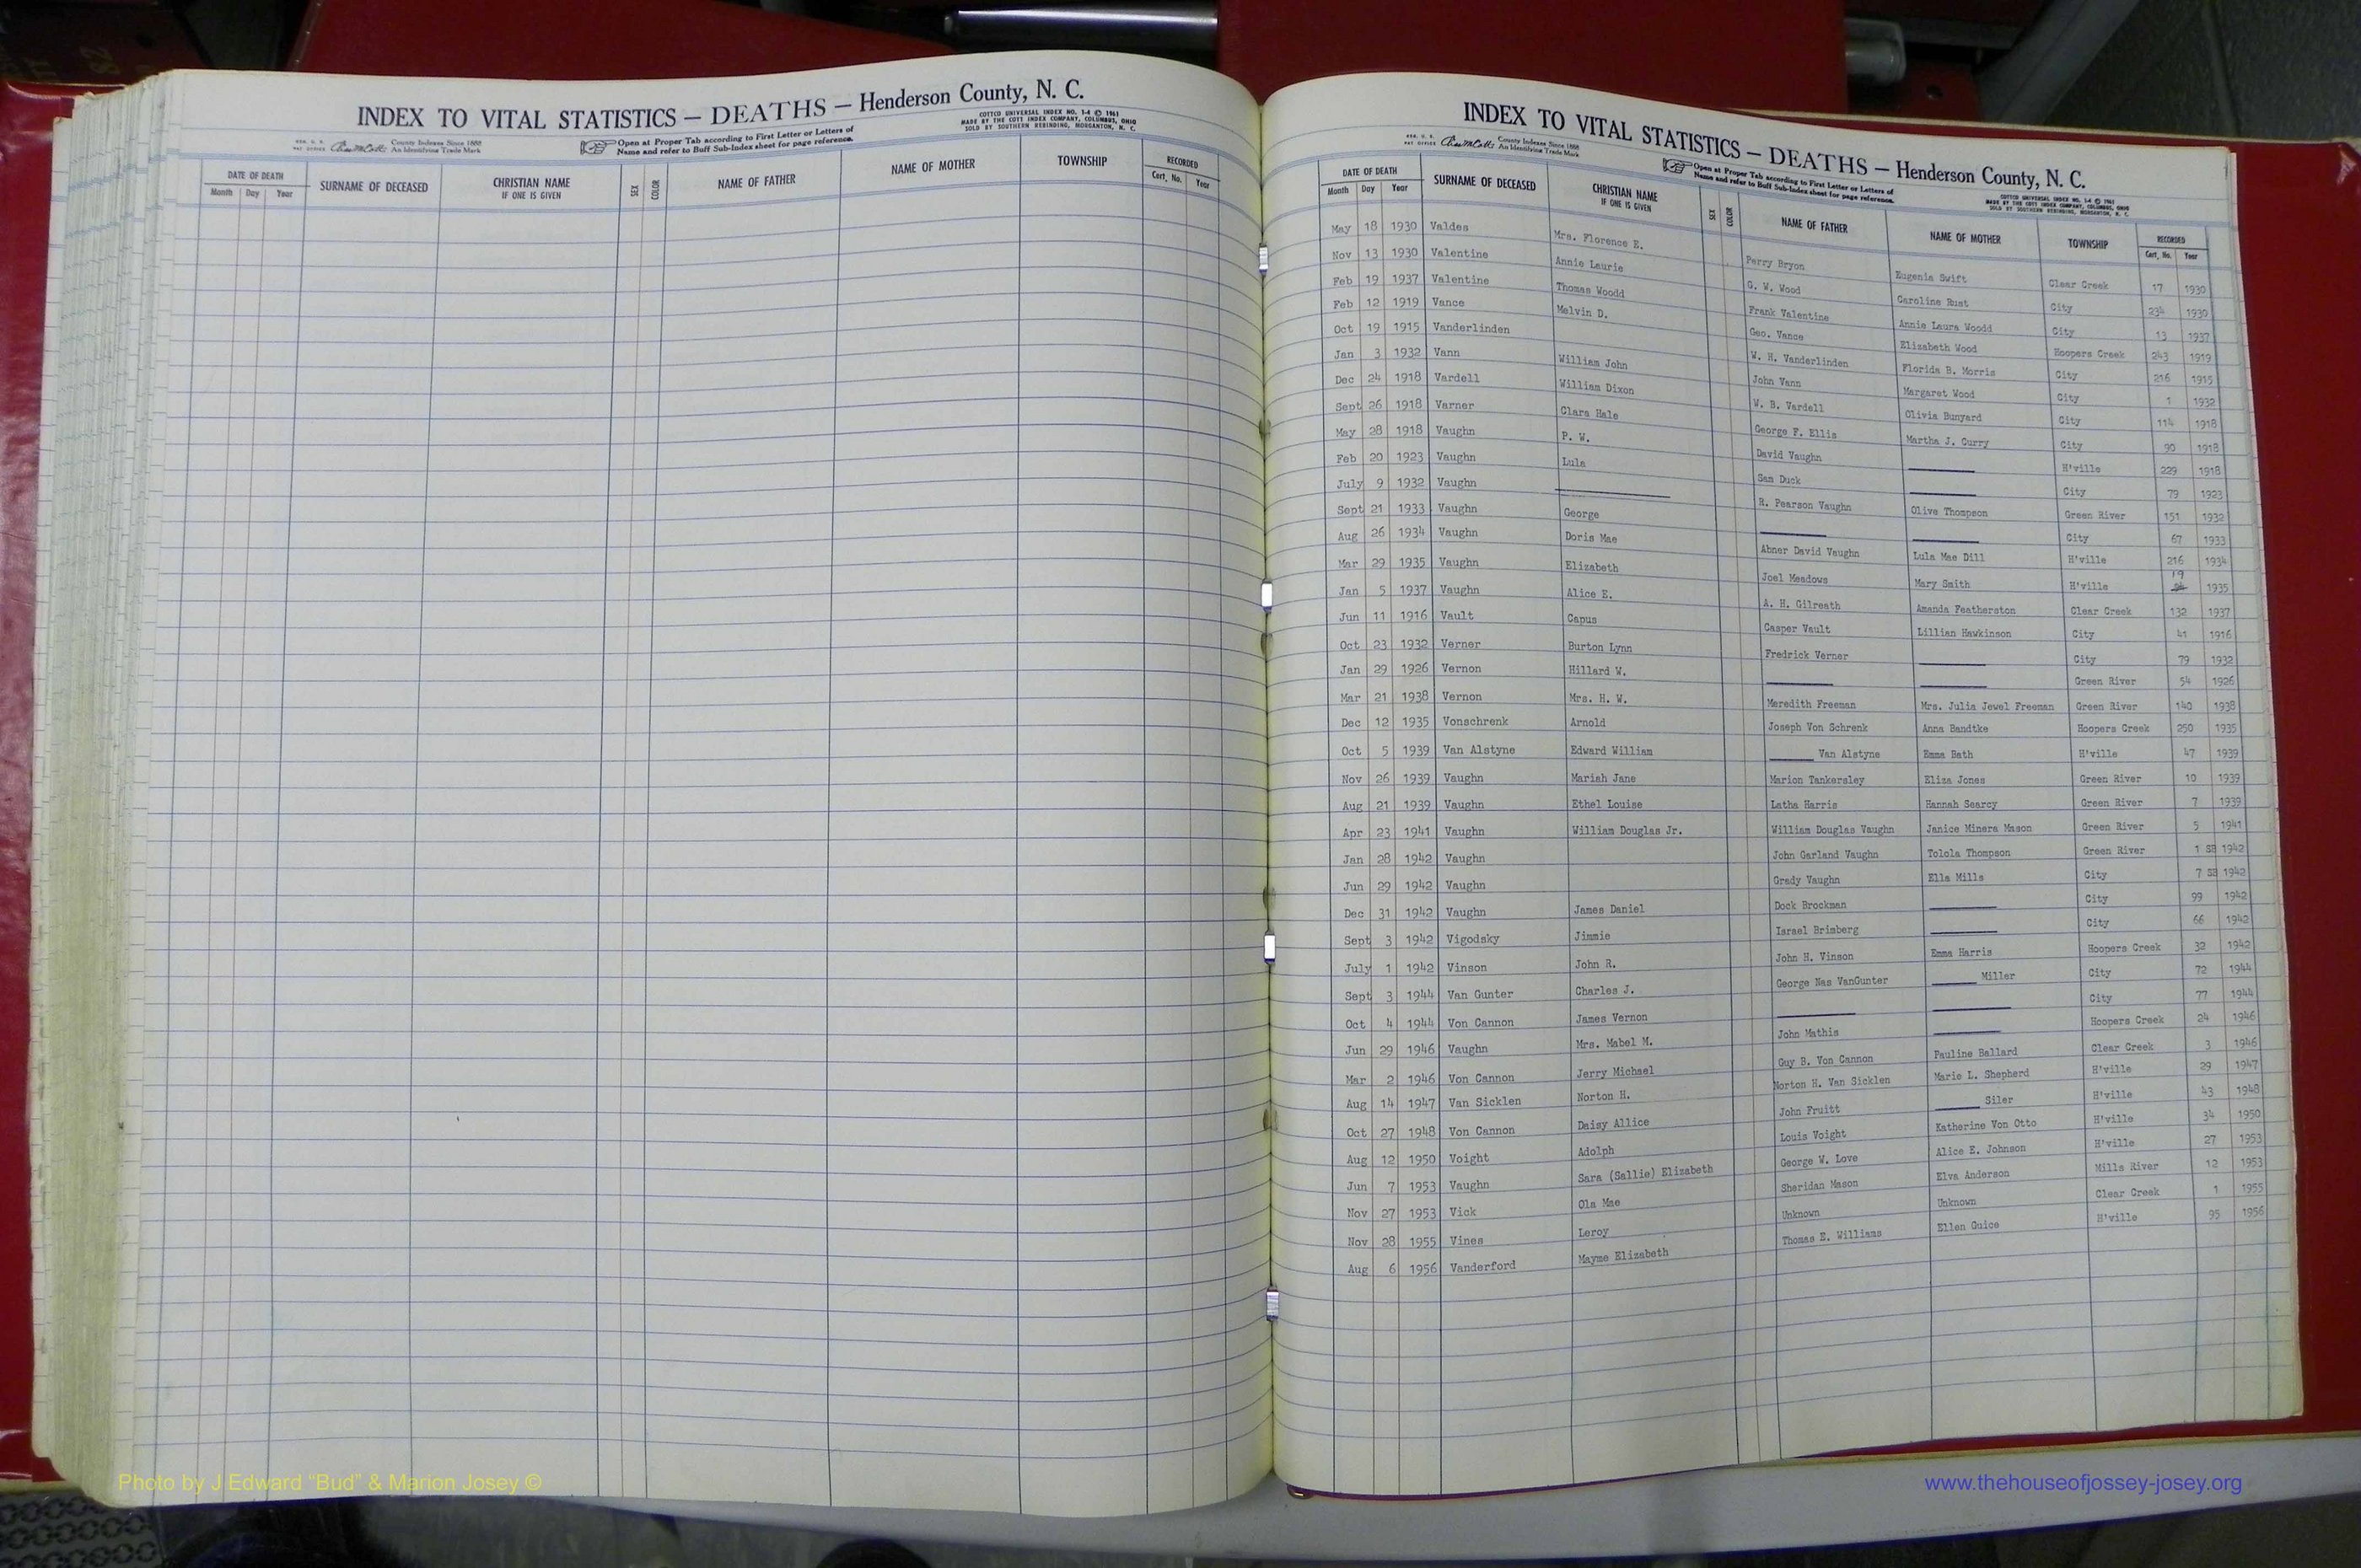 INDEX TO VITAL STATISTICS — DEATHS — Henderson County, N. C.
COTTCO UNIVERSAL INDEX NO. 1-4 © 1961
MADE BY THE COTT INDEX COMPANY, COLUMBUS, OHIO
SOLD BY SOUTHERN REBINDING, MORGANTON, N. C.
REG. U. S. PAT OFFICE County Indexes Since 1888 An Identifying Trade Mark
Open at Proper Tab according to First Letter or Letters of
Name and refer to Buff Sub-Index sheet for page reference.
DATE OF DEATH Month Day Year SURNAME OF DECEASED CHRISTIAN NAME IF ONE IS GIVEN SEX COLOR NAME OF FATHER NAME OF MOTHER TOWNSHIP RECORDED Cert. No. Year
INDEX TO VITAL STATISTICS — DEATHS — Henderson County, N. C.
REG. U. S. PAT OFFICE County Indexes Since 1888 An Identifying Trade Mark
Open at Proper Tab according to First Letter or Letters of
Name and refer to Buff Sub-Index sheet for page reference.
COTTCO UNIVERSAL INDEX NO. 1-4 © 1961
MADE BY THE COTT INDEX COMPANY, COLUMBUS, OHIO
SOLD BY SOUTHERN REBINDING, MORGANTON, N. C.
DATE OF DEATH Month Day Year SURNAME OF DECEASED CHRISTIAN NAME IF ONE IS GIVEN SEX COLOR NAME OF FATHER NAME OF MOTHER TOWNSHIP RECORDED Cert. No. Year
May 18 1930 Valdes Mrs. Florence E. Perry Bryon Eugenia Swift Clear Creek 17 1930
Nov 13 1930 Valentine Annie Laurie G. W. Wood Caroline Rust City 234 1930
Feb 19 1937 Valentine Thomas Woodd Frank Valentine Annie Laura Woodd City 13 1937
Feb 12 1919 Vance Melvin D. Geo. Vance Elizabeth Wood Hoopers Creek 243 1919
Oct 19 1915 Vanderlinden W. H. Vanderlinden Florida B. Morris City 216 1915
Jan 3 1932 Vann William John John Vann Margaret Wood City 1 1932
Dec 24 1918 Vardell William Dixon W. B. Vardell Olivia Bunyard City 114 1918
Sept 26 1918 Varner Clara Hale George F. Ellis Martha J. Curry City 90 1918
May 28 1918 Vaughn P. W. David Vaughn H'ville 229 1918
Feb 20 1923 Vaughn Lula Sam Duck City 79 1923
July 9 1932 Vaughn R. Pearson Vaughn Olive Thompson Green River 151 1932
Sept 21 1933 Vaughn George City 67 1933
Aug 26 1934 Vaughn Doris Mae Abner David Vaughn Lula Mae Dill H'ville 216 1934
Mar 29 1935 Vaughn Elizabeth Joel Meadows Mary Smith H'ville 19 1935
Jan 5 1937 Vaughn Alice E. A. H. Gilreath Amanda Featherston Clear Creek 132 1937
Jun 11 1916 Vault Capus Casper Vault Lillian Hawkinson City 41 1916
Oct 23 1932 Verner Burton Lynn Fredrick Verner City 79 1932
Jan 29 1926 Vernon Hillard W. Green River 54 1926
Mar 21 1938 Vernon Mrs. H. W. Meredith Freeman Mrs. Julia Jewel Freeman Green River 140 1938
Dec 12 1935 Vonschrenk Arnold Joseph Von Schrenk Anna Bandtke Hoopers Creek 250 1935
Oct 5 1939 Van Alstyne Edward William Van Alstyne Emma Bath H'ville 47 1939
Nov 26 1939 Vaughn Mariah Jane Marion Tankersley Eliza Jones Green River 10 1939
Aug 21 1939 Vaughn Ethel Louise Latha Harris Hannah Searcy Green River 7 1939
Apr 23 1941 Vaughn William Douglas Jr. William Douglas Vaughn Janice Minera Mason Green River 5 1941
Jan 28 1942 Vaughn John Garland Vaughn Tolola Thompson Green River 1 SB 1942
Jun 29 1942 Vaughn Grady Vaughn Ella Mills City 7 SB 1942
Dec 31 1942 Vaughn James Daniel Dock Brockman City 99 1942
Sept 3 1942 Vigodsky Jimmie Israel Brimberg City 66 1942
July 1 1942 Vinson John R. John H. Vinson Emma Harris Hoopers Creek 32 1942
Sept 3 1944 Van Gunter Charles J. George Nas VanGunter Miller City 72 1944
Oct 4 1944 Von Cannon James Vernon City 77 1944
Jun 29 1946 Vaughn Mrs. Mabel M. John Mathis Hoopers Creek 24 1946
Mar 2 1946 Von Cannon Jerry Michael Guy B. Von Cannon Pauline Ballard Clear Creek 3 1946
Aug 14 1947 Van Sicklen Norton H. Norton H. Van Sicklen Marie L. Shepherd H'ville 29 1947
Oct 27 1948 Von Cannon Daisy Allice John Fruitt Siler H'ville 43 1948
Aug 12 1950 Voight Adolph Louis Voight Katherine Von Otto H'ville 34 1950
Jun 7 1953 Vaughn Sara (Sallie) Elizabeth George W. Love Alice E. Johnson H'ville 27 1953
Nov 27 1953 Vick Ola Mae Sheridan Mason Elva Anderson Mills River 12 1953
Nov 28 1955 Vines Leroy Unknown Unknown Clear Creek 1 1955
Aug 6 1956 Vanderford Mayme Elizabeth Thomas E. Williams Ellen Guice H'ville 95 1956
Photo by J Edward "Bud" & Marion Josey ©
www.thehouseofjossey-josey.org